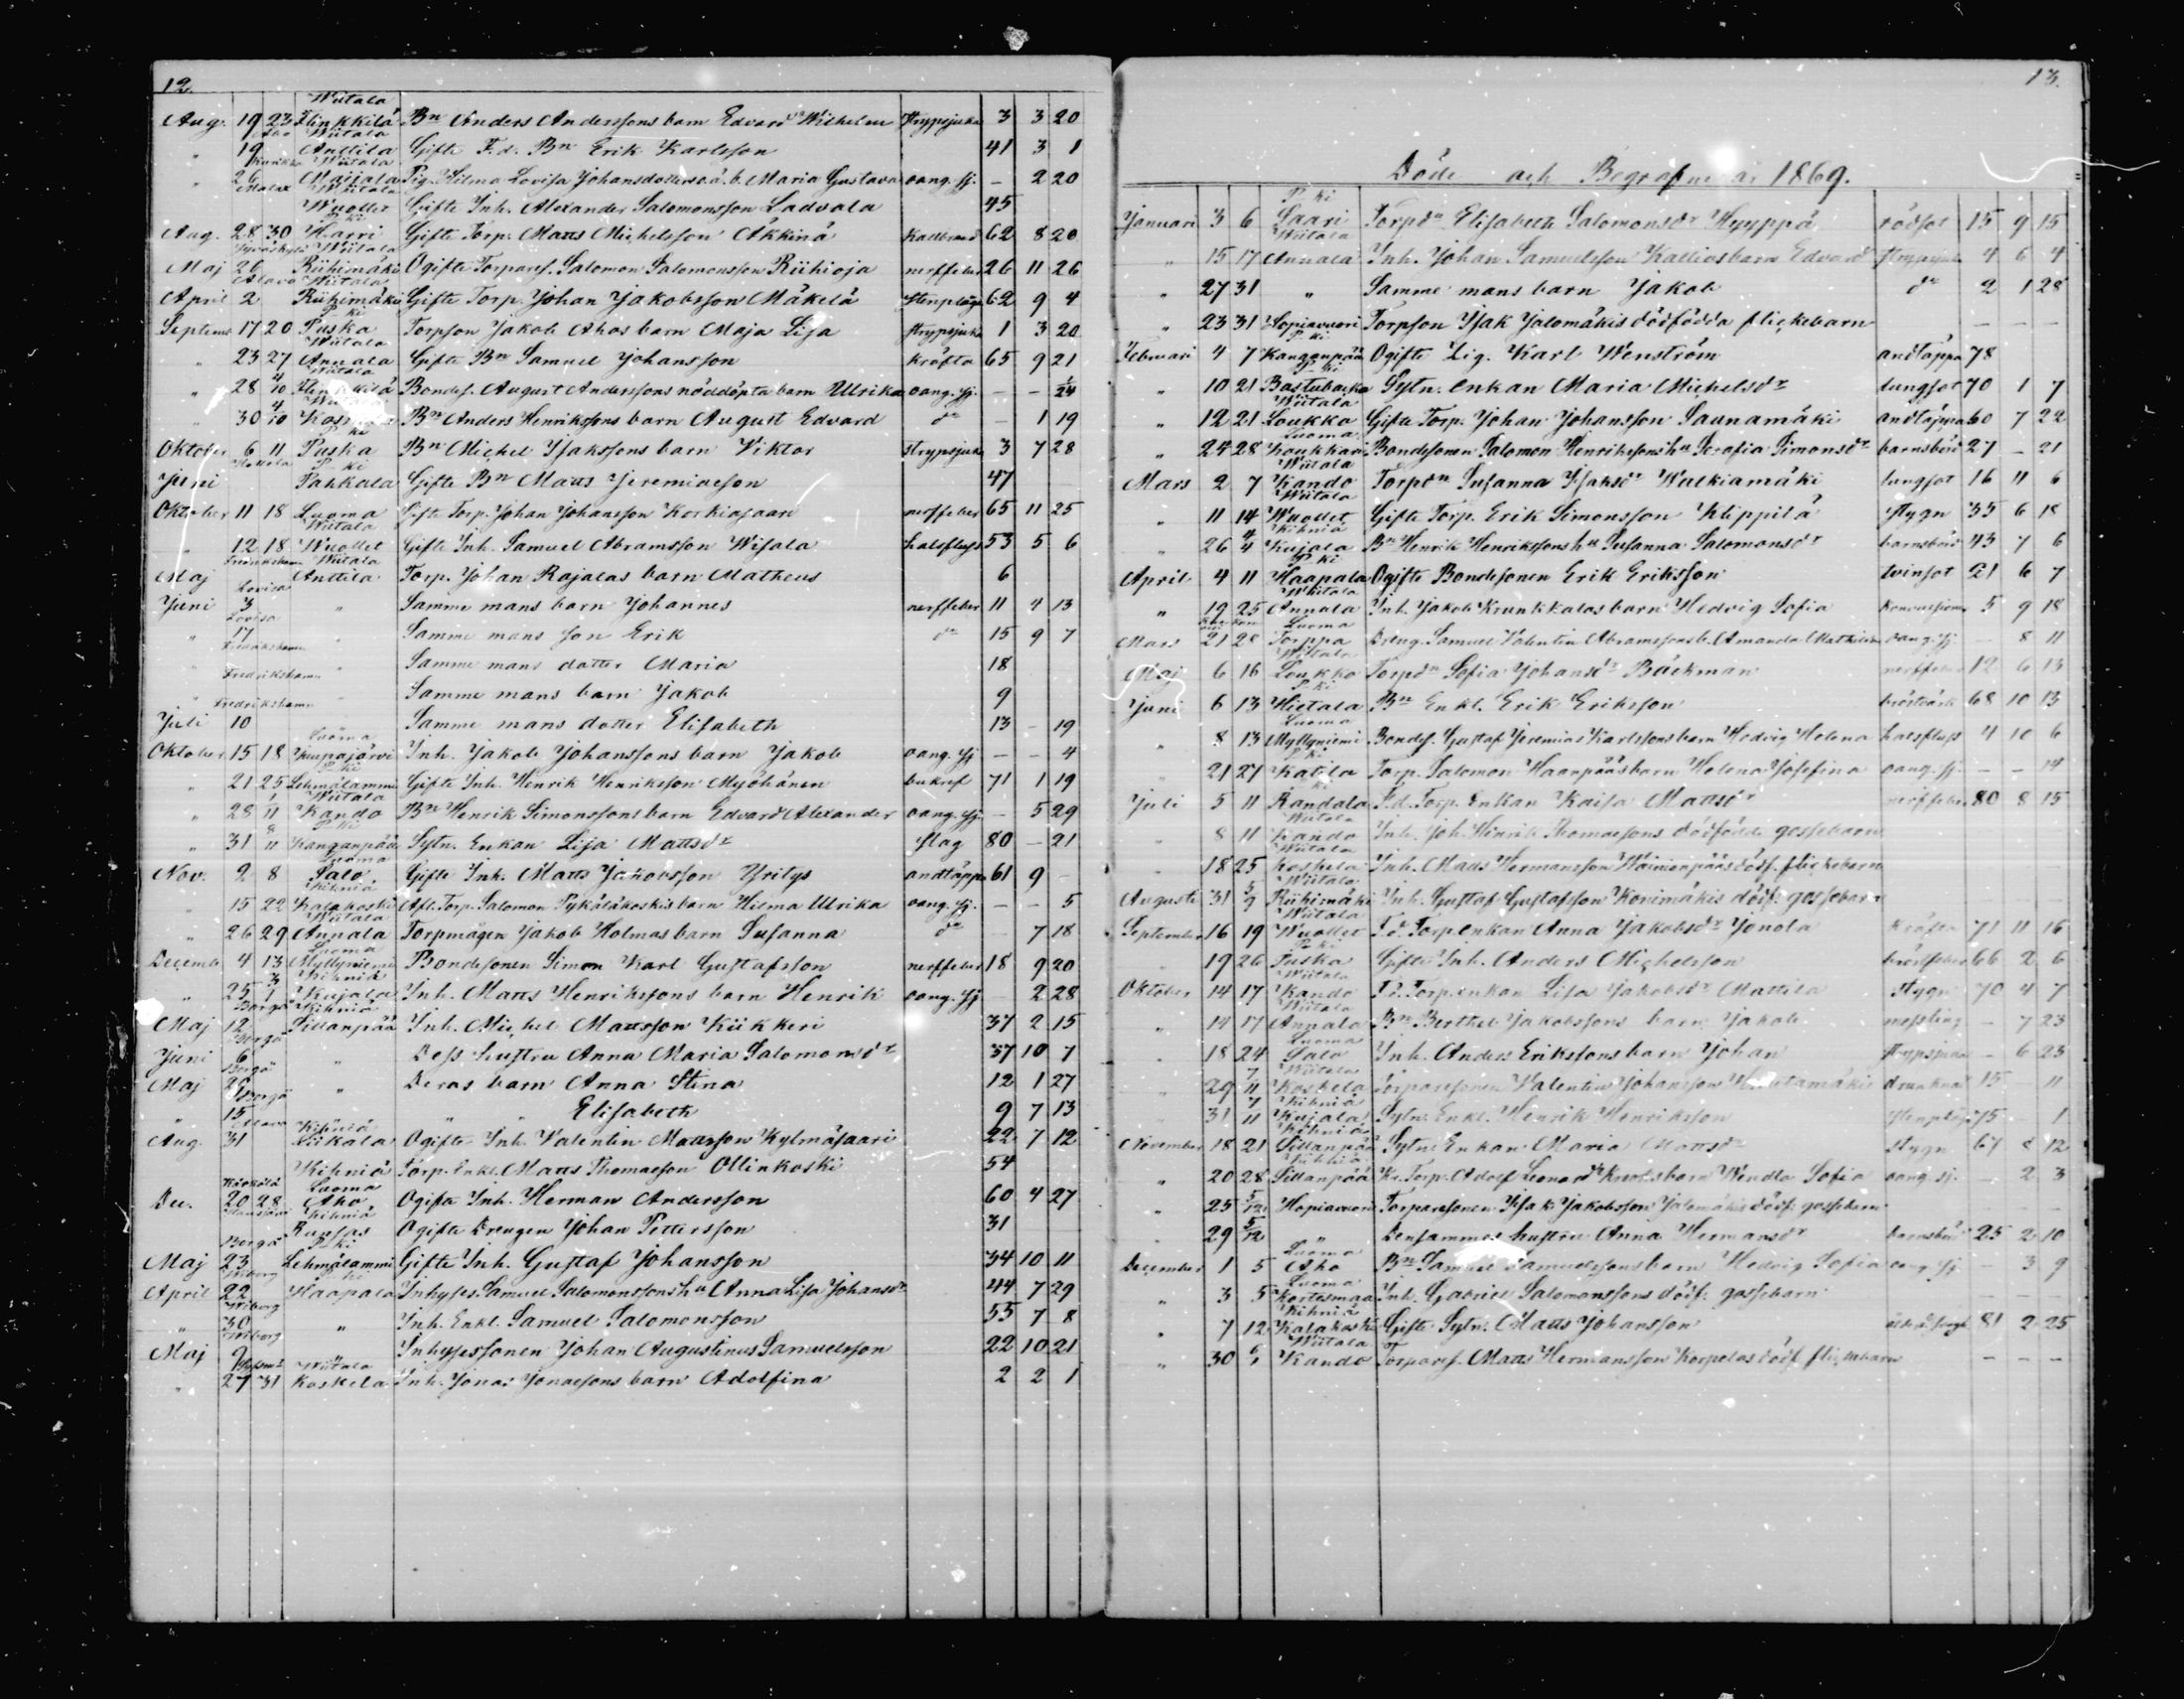 12.
Wiitala
Aug. 19 23 Flinkkilä Bn Anders Anderssons barn Edvard Wilhelm strypsjuka 3 3 20
Åbo Wiitala
" 19 Anttila Gifte F.d. Bn Erik Karlsson 41 3 1
Wiitala
" 26 Maijala Pig. Hilma Lovisa Johansdotters o.ä. b. Maria Gustava oang. sj. – 2 20
Malax Wiitala
Wuollet Gifte Inh. Alexander Salomonsson Ladvala 45
P. ki
Aug. 28 30 Harri Gifte Torp. Matts Michelsson Äkkinä kallbrand 62 8 20
Jyväskylä Wiitala
Maj 26 Riihimäki Ogifte Torparef. Salomon Salomonsson Riihioja nerffeber 26 11 26
Alavo Wiitala
April 2 Riihimäki Gifte Torp. Johan Jakobsson Mäkelä stenplåga 62 9 4
P. ki
Septemb 17 20 Puska Torpson Jakob Ahos barn Maja Lisa strypsjuka 1 3 20
Wiitala
" 23 27 Annala Gifte Bn Samuel Johansson kräfta 65 9 21
Wiitala
" 28 4/10 Flinkkilä Bondes. August Anderssons nöddöpta barn Ulrika oang. sj. – – 1/24
" 30 4/10 Bn Anders Henrikssons barn August Edvard do – 1 19
P. ki
Oktober 6 11 Puska Bn Michel Isakssons barn Viktor strypsjuka 3 7 28
P. ki
Juni Pahkala Gifte Bn Matts Jeremiaeson 47
Oktober 11 18 Luoma Gifte Torp. Johan Johansson Korkiasaari nerffeber 65 11 25
Wiitala
" 12 18 Wuollet Gifte Inh. Samuel Abramsson Wisala halsfluss 53 5 6
Fredrikshamn Wiitala
Maj Anttila Torp. Johan Rajalas barn Matheus 6
Lovisa
Juni 3 " Samme mans barn Johannes nerffeber 11 4 13
Lovisa
" 17 " Samme mans son Erik do 15 9 7
Fredrikshamn
" " Samme mans dotter Maria 18
Fredrikshamn
" " Samme mans barn Jakob 9
Fredrikshamn
Juli 10 Samme mans dotter Elisabeth 13 – 19
Luoma
Oktober 15 18 Kuopajärvi Inh. Jakob Johanssons barn Jakob oang. sj – – 4
P. ki
" 21 25 Lehmälammi Gifte Inh. Henrik Henriksson Myöhänen bukref 71 1 19
Wiitala
" 28 1/11 Kando Bn Henrik Simonssons barn Edvard Alexander oang. sj. – 5 29
P. ki
" 31 8/11 Kanganpää Sytn. Enkan Lisa Mattsdr slag 80 – 21
Luoma
Nov. 2 8 Salo Gifte Inh. Matts Jakobsson Yritys andtäppa 61 9 –
Kihniä
" 15 22 Kalakoski Afl. Torp. Salomon Pykäläkoskis barn Hilma Ulrika oang. sj. – – 5
Wiitala
" 26 29 Annala Torpmågen Jakob Holmas barn Susanna do – 7 18
Luoma
Decemb 4 13 Myllyniemi Bondesonen Simon Karl Gustafsson nerffeber 18 9 20
Kihniä
" 25 3/1 Kujala Inh. Matts Henrikssons barn Henrik oang. sj – 2 28
Borgå Kihniä
Maj 12 Sillanpää Inh. Michel Mattsson Kiikkeri 37 2 15
Borgå
Juni 6 " Dess hustru Anna Maria Salomonsdr 37 10 7
Borgå
Maj 26 " Deras barn Anna Stina 12 1 27
Borgå
" 15 " " Elisabeth 9 7 13
Kihniä
Aug. 31 Liikala Ogifte Inh. Valentin Mattsson Kylmäsaari 22 7 12
Kihniä Torp. Enkl. Matts Thomaeson Ollinkoski 54
Luoma
Dec. 20 28 Aho Ogifta Inh. Herman Andersson 60 4 27
Kihniä
Ruostas Ogifte Drengen Johan Pettersson 31
Borgå P. ki
Maj 23 Lehmälammi Gifte Inh. Gustaf Johansson 34 10 11
Wiborg P. ki
April 22 Haapala Inhyses. Samuel Salomonssons hu Anna Lisa Johansdr 44 7 29
Wiborg
" 30 " Inh. Enkl. Samuel Salomonsson 55 7 8
Wiborg
Maj 9 Inhysessonen Johan Augustinus Samuelsson 22 10 21
Wiitala
" 27 31 Koskela Inh. Jonas Jonaesons barn Adolfina 2 2 1
13.
Döde och Begrafne år 1869.
P. ki
Januari 3 6 Saari Torpdn Elisabeth Salomonsdr Hyyppä rödsot 15 9 15
Wiitala
" 15 17 Annala Inh. Johan Samuelsson Kallios barn Edvard strypsjuka 4 6 4
" 27 31 " Samme mans barn Jakob do 2 1 28
" 23 31 Hopiavuori Torpson Isak Jalomäkis dödfödda flickebarn – – –
P. ki
Februari 4 7 Kanganpää Ogifte Lig. Karl Wenström andtäppa 78
P. ki
" 10 21 Bastubacka Sytn. enkan Maria Michelsdr lungsot 70 1 7
Wiitala
" 12 21 Loukko Gifte Torp. Johan Johansson Saunamäki andtäppa 60 7 22
Luoma
" 24 28 Koukkari Bondesonen Salomon Henrikssons hu Serafia Simonsdr barnsbörd 27 – 21
Wiitala
Mars 2 7 Kando Torpdn Susanna Isaksdr Walkiamäki lungsot 16 11 6
Wiitala
" 11 14 Wuollet Gifte Torp. Erik Simonsson Klippilä stygn 35 6 18
Kihniä
" 26 4/4 Kujala Bn Henrik Henrikssons hu Susanna Salomonsdr barnsbörd 43 7 6
P. ki
April 4 11 Haapala Ogifte Bondesonen Erik Eriksson tvinsot 21 6 7
Wiitala
" 19 25 Annala Inh. Jakob Kruntikalas barn Hedvig Sofia 5 9 18
Luoma
Mars 21 28 Torppa Dreng. Samuel Valentin Abramssons b. Amanda Mathilda oang. sj. – 8 11
Wiitala
Maj 6 16 Loukko Torpdn Sofia Johansdr Bäckman nerffeber 12 6 13
P. ki
Juni 6 13 Hietala Bn Enkl. Erik Eriksson bröstvärk 68 10 13
Luoma
" 8 13 Myllyniemi Bondes. Gustaf Jeremias Karlssons barn Hedvig Helena halsfluss 4 10 6
P. ki
" 21 27 Katila Torp. Salomon Haanpääs barn Helena Josefina oang. sj. – – 14
Juli 5 11 Randala F.d. Torp. Enkan Kaisa Mattsdr nerffeber 80 8 15
Wiitala
" 8 11 Kando Inh. Joh. Henrik Thomaesons dödfödde gossebarn
Wiitala
18 25 Koskela Inh. Matts Hermansson Wäinionpääs dödf. flickebarn
Wiitala
Augusti 31 5/9 Riihimäki Inh. Gustaf Gustafsson Korimäkis dödf. gossebarn
Wiitala
September 16 19 Wuollet F.d. Torpenkan Anna Jakobsdr Jonola kräfta 71 11 16
P. ki
" 19 26 Puska Gifte Inh. Anders Michelsson bröstfeber 66 2 6
Wiitala
Oktober 14 17 Kando F.d. Torpenkan Lisa Jakobsdr Mattila stygn 70 4 7
Wiitala
" 14 17 Annala Bn Berthel Jakobssons barn Jakob messling – 7 23
Luoma
" 18 24 Salo Inh. Anders Erikssons barn Johan strypsjuka – 6 23
Wiitala
29 7/11 Koskela Torparesonen Valentin Johansson drunknad 15 11
Kihniä
" 31 7/11 Kujala Sytn. Enkl. Henrik Henriksson stenplåga 75 1
Kihniä
November 18 21 Sillanpää Sytn. Enkan Maria Mattsdr stygn 67 8 12
Kihniä
" 20 28 Sillanpää Kr. Torp. Adolf Leonard barn Wendla Sofia oang. sj. – 2 3
" 25 5/12 Hopiavuori Torparesonen Isak Jakobsson Jalomäkis dödf. gossebarn – – –
" 29 5/12 " Densammes hustru Anna Hermansdr barnsbörd 25 2 10
Luoma
December 1 5 Aho Bn Samuel Samuelssons barn Hedvig Sofia oang. sj – 3 9
Luoma
" 3 5 Kortesmaa Inh. Gabriel Salomonssons dödf. gossebarn – – –
Kihniä
" 7 12 Kalakoski Gifte Sytn. Matts Johansson 81 2 25
Wiitala
" 30 6/1 Kando Torparef. Matts Hermansson Korpelas dödf. flickebarn – – –